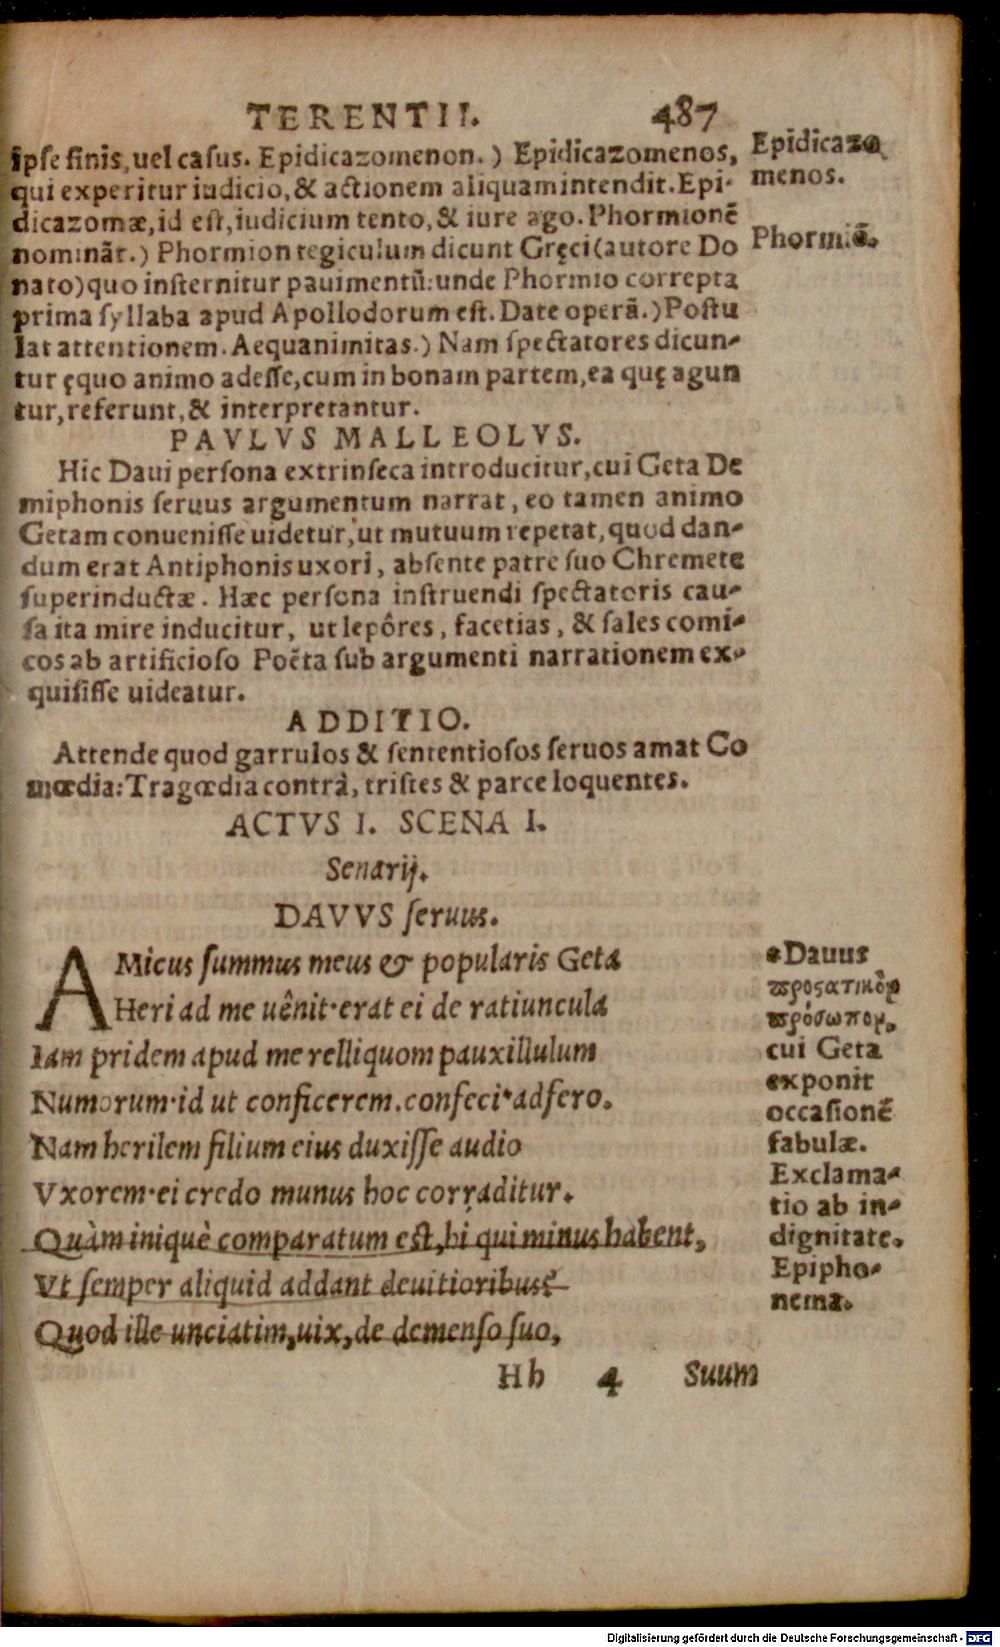 TERENTII. 487
ipse finis, uel casus. Epidicazomenon.) Epidicazomenos,
qui experitur iudicio, & actionem aliquam intendit. Epi-
dicazomæ, id est, iudicium tento, & iure ago. Phormionẽ
nominãt.) Phormion tegiculum dicunt Gręci (autore Do
nato) quo insternitur pauimentũ: unde Phormio correpta
prima syllaba apud Apollodorum est. Date operã.) Postu
lat attentionem. Aequanimitas.) Nam spectatores dicun-
tur ęquo animo adesse, cum in bonam partem, ea quę agun
tur, referunt, & interpretantur.
Epidicazo
menos.
Phormiõ.
PAVLVS MALLEOLVS.
Hic Daui persona extrinseca introducitur, cui Geta De
miphonis seruus argumentum narrat, eo tamen animo
Getam conuenisse uidetur, ut mutuum repetat, quod dan-
dum erat Antiphonis uxori, absente patre suo Chremete
superinductæ. Hæc persona instruendi spectatoris cau-
sa ita mire inducitur, ut lepôres, facetias, & sales comi-
cos ab artificioso Poëta sub argumenti narrationem ex-
quisisse uideatur.
ADDITIO.
Attende quod garrulos & sententiosos seruos amat Co
mœdia: Tragœdia contrà, tristes & parce loquentes.
ACTVS I. SCENA I.
Senarij.
DAVVS seruus.
AMicus summus meus & popularis Geta
Heri ad me uênit· erat ei de ratiuncula
Iam pridem apud me relliquom pauxillulum
Numorum· id ut conficerem. confeci· adfero.
Nam herilem filium eius duxisse audio
Vxorem· ei credo munus hoc corraditur.
Quàm iniquè comparatum est, hi qui minus habent,
Vt semper aliquid addant deuitioribus?
Quod ille unciatim, uix, de demenso suo,
*Dauus
προςατικὸν
πρόσωπον,
cui Geta
exponit
occasionẽ
fabulæ.
Exclama-
tio ab in-
dignitate.
Epipho-
nema.
Hh 4 Suum
Digitalisierung gefördert durch die Deutsche Forschungsgemeinschaft - DFG